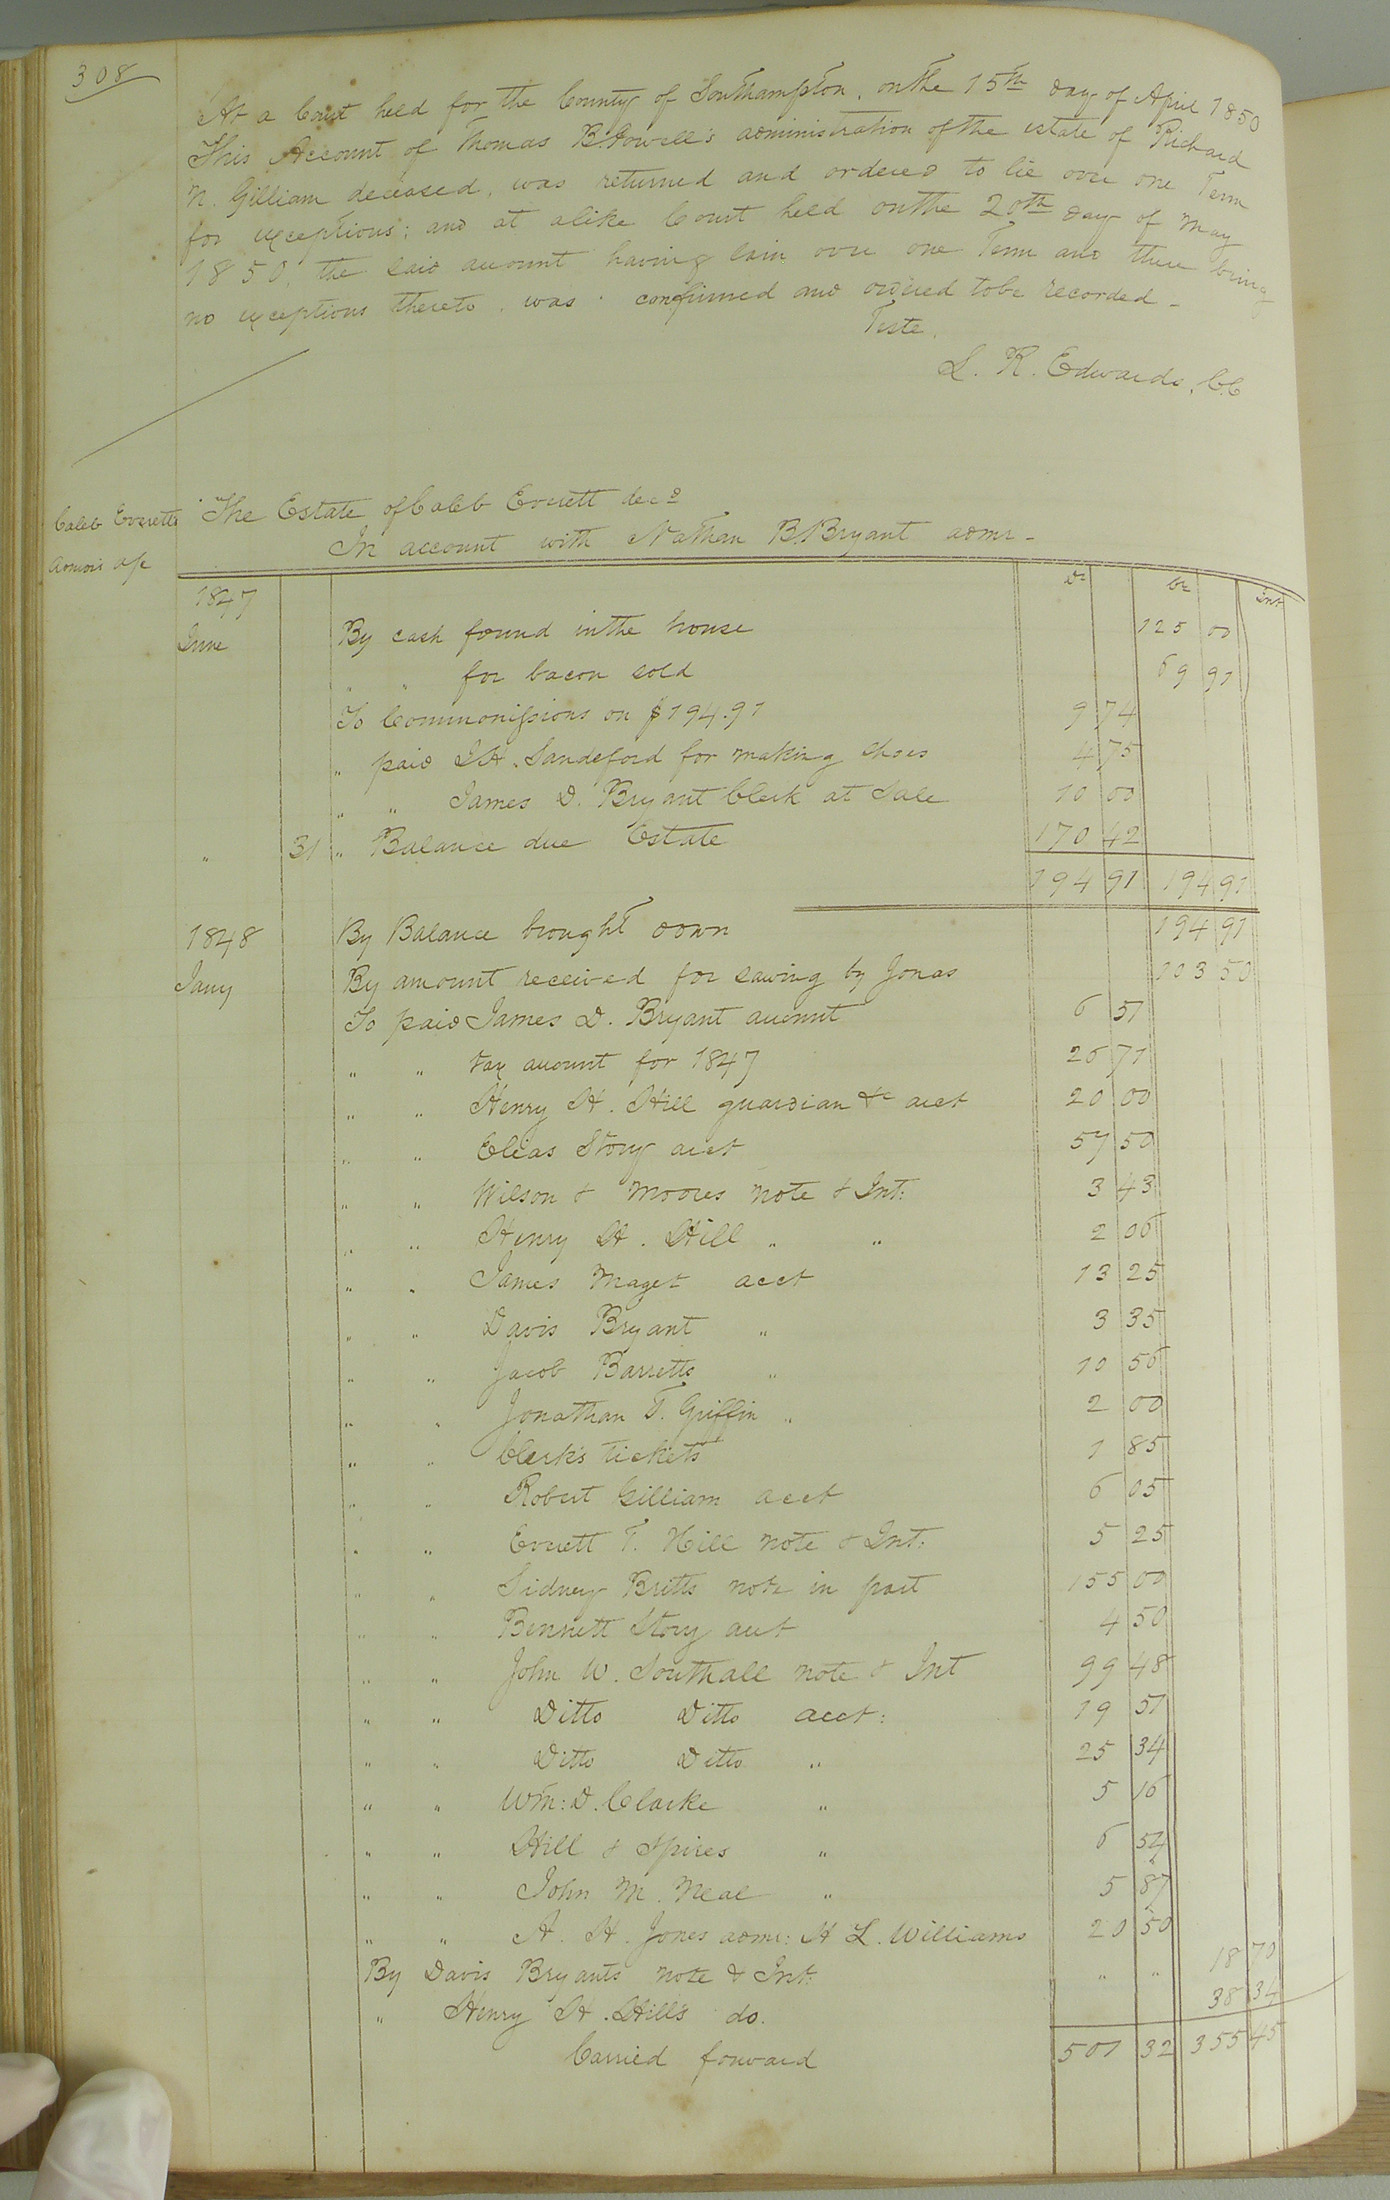 308
At a Court held for the County of Southampton, on the 15th day of April 1850
This Account of Thomas B. Howell's administration of the estate of Richard
N. Gilliam deceased, was returned and ordered to lie over one Term
for exceptions; and at alike Court held on the 20th day of May
1850, the said account having lain over one Term and there being
no exceptions thereto, was confirmed and ordered to be recorded -
Teste,
L. R. Edwards, C.C
Caleb Everetts
Admors a/c
The Estate of Caleb Everett decd
In account with Nathan B. Bryant admr -
Dr Cr Int
1847
June By cash found in the house 125 00
" " for bacon sold 69 91
To Commonissions on $194.91 9 74
" paid J.H. Sandeford for making shoes 4 75
" " James D. Bryant Clerk at Sale 10 00
" 31 " Balance due Estate 170 42
194 91 194 91
1848 By Balance brought down 194 91
Jany By amount received for sawing by Jonas 103 50
To paid James D. Bryant account 6 51
" " Tax account for 1847 26 71
" " Henry H. Hill guardian &c acct 20 00
" " Elias Story acct 57 50
" " Wilson & Moores note & Int: 3 43
" " Henry H. Hill " " 2 06
" " James Maget acct 13 25
" " Davis Bryant " 3 35
" " Jacob Barretts " 10 56
" " Jonathan T. Griffin " 2 00
" " Clerk's tickets 1 85
" " Robert Gilliam acct 6 05
" " Everett T. Hill note & Int: 5 25
" " Sidney Britts note in part 155 00
" " Bennett Story acct 4 50
" " John W. Southall note & Int 99 48
" " Ditto Ditto acct: 19 51
" " Ditto Ditto " 25 34
" " Wm: D. Clarke " 5 16
" " Hill & Spires " 6 54
" " John M. Neal " 5 87
" " A. H. Jones admr: H L. Williams 20 50
By Davis Bryants note & Int: " " 18 70
" Henry H. Hills do. 38 34
Carried forward 501 32 355 45